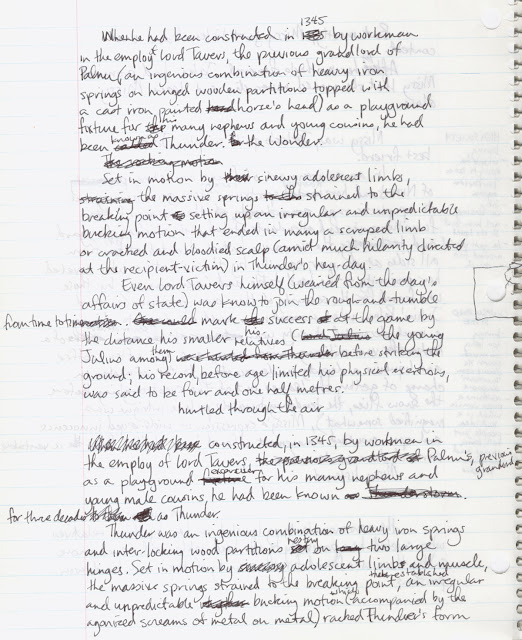 1345
When he had been constructed in by workman
in the employ of Lord Tavers, the previous grandlord of
Palmu (an ingenious combination of heavy iron
springs on hinged wooden partitions topped with
a cast iron painted horse's head) as a playground
fixture for his many nephews and young cousins, he had
been known as Thunder. the Wonder.
The rocking motion
Set in motion by their sinewy adolescent limbs,
straining the massive springs strained to the
breaking point setting up an irregular and unpredictable
bucking motion that ended in many a scraped limb
or cracked and bloodied scalp (amid much hilarity directed
at the recipient-victim) in Thunder's hey-day.
Even Lord Tavers himself (wearied from the day's
affairs of state) was know to join the rough-and-tumble
from time to time. One could mark the success of at the game by
the distance his smaller relatives (Lord Julius his the young
Julius among them before striking the
ground; his record, before age limited his physical exertions,
was said to be four and one half metres.
hurtled through the air
constructed, in 1345, by workmen in
the employ of Lord Tavers, the previous grandlord of Palmu's, previous grandlord
as a playground expressly for his many nephews and
young male cousins, he had been known Thunderstorm.
for three decades as Thunder.
Thunder was an ingenious combination of heavy iron springs
and inter-locking wood partitions set nesting on two large
hinges. Set in motion by adolescent limbs and muscle,
the massive springs strained to the breaking point, there established an irregular
and unpredictable bucking motion which (accompanied by the
agonized screams of metal on metal) racked Thunder's form